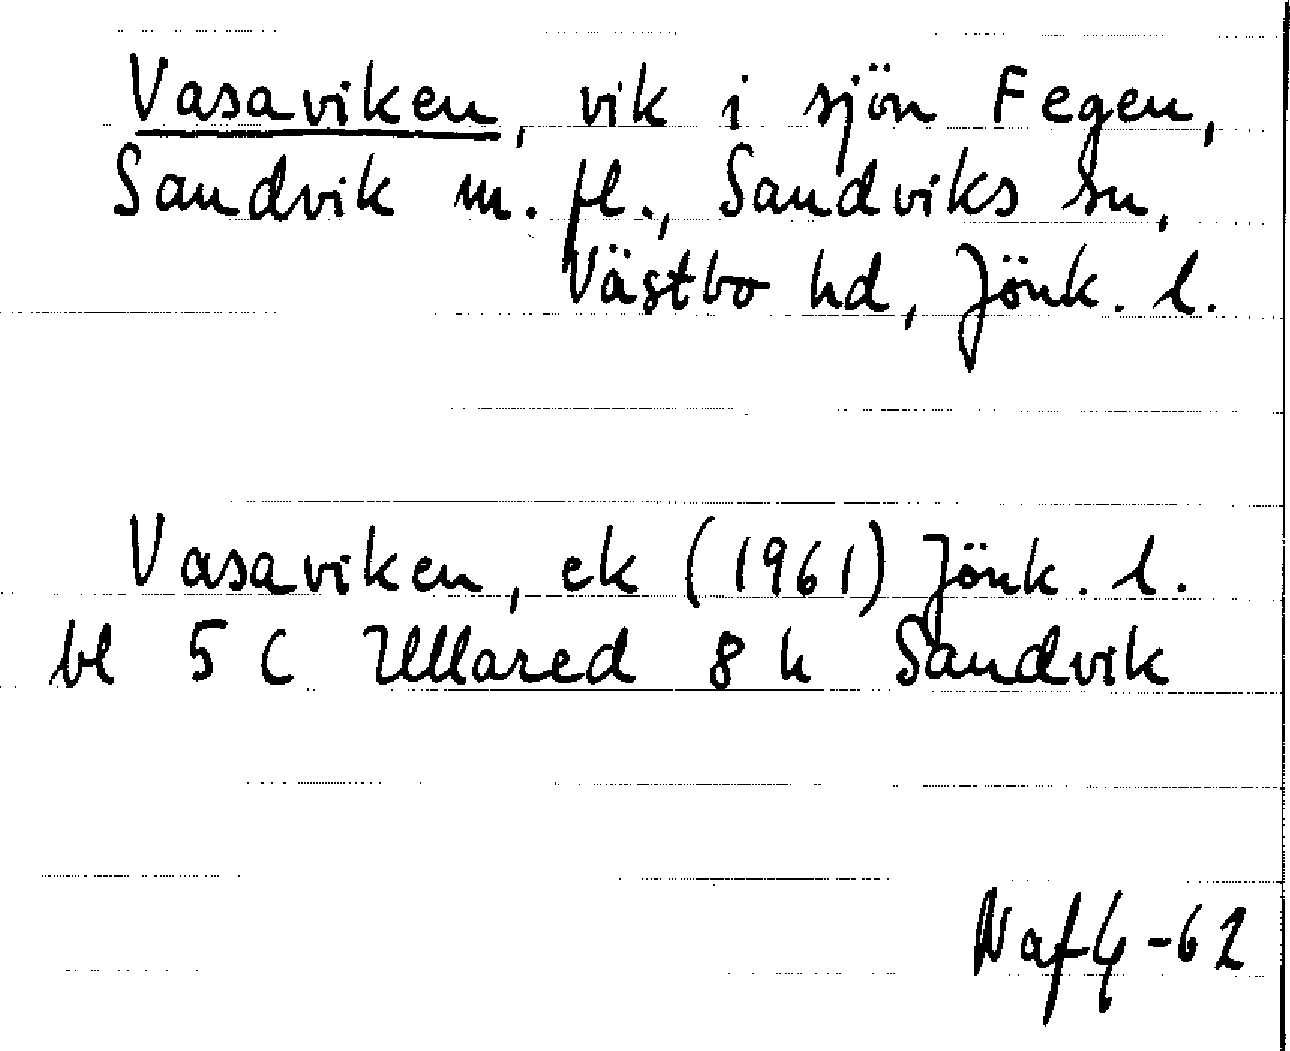 Vasaviken, vik i sjön Fegen,
Sandvik m. fl., Sandviks sn,
Västbo hd, Jönk. l.
Vasaviken, ek (1961) Jönk. l.
bl 5 C Ullared 8 h Sandvik
Naf4-62